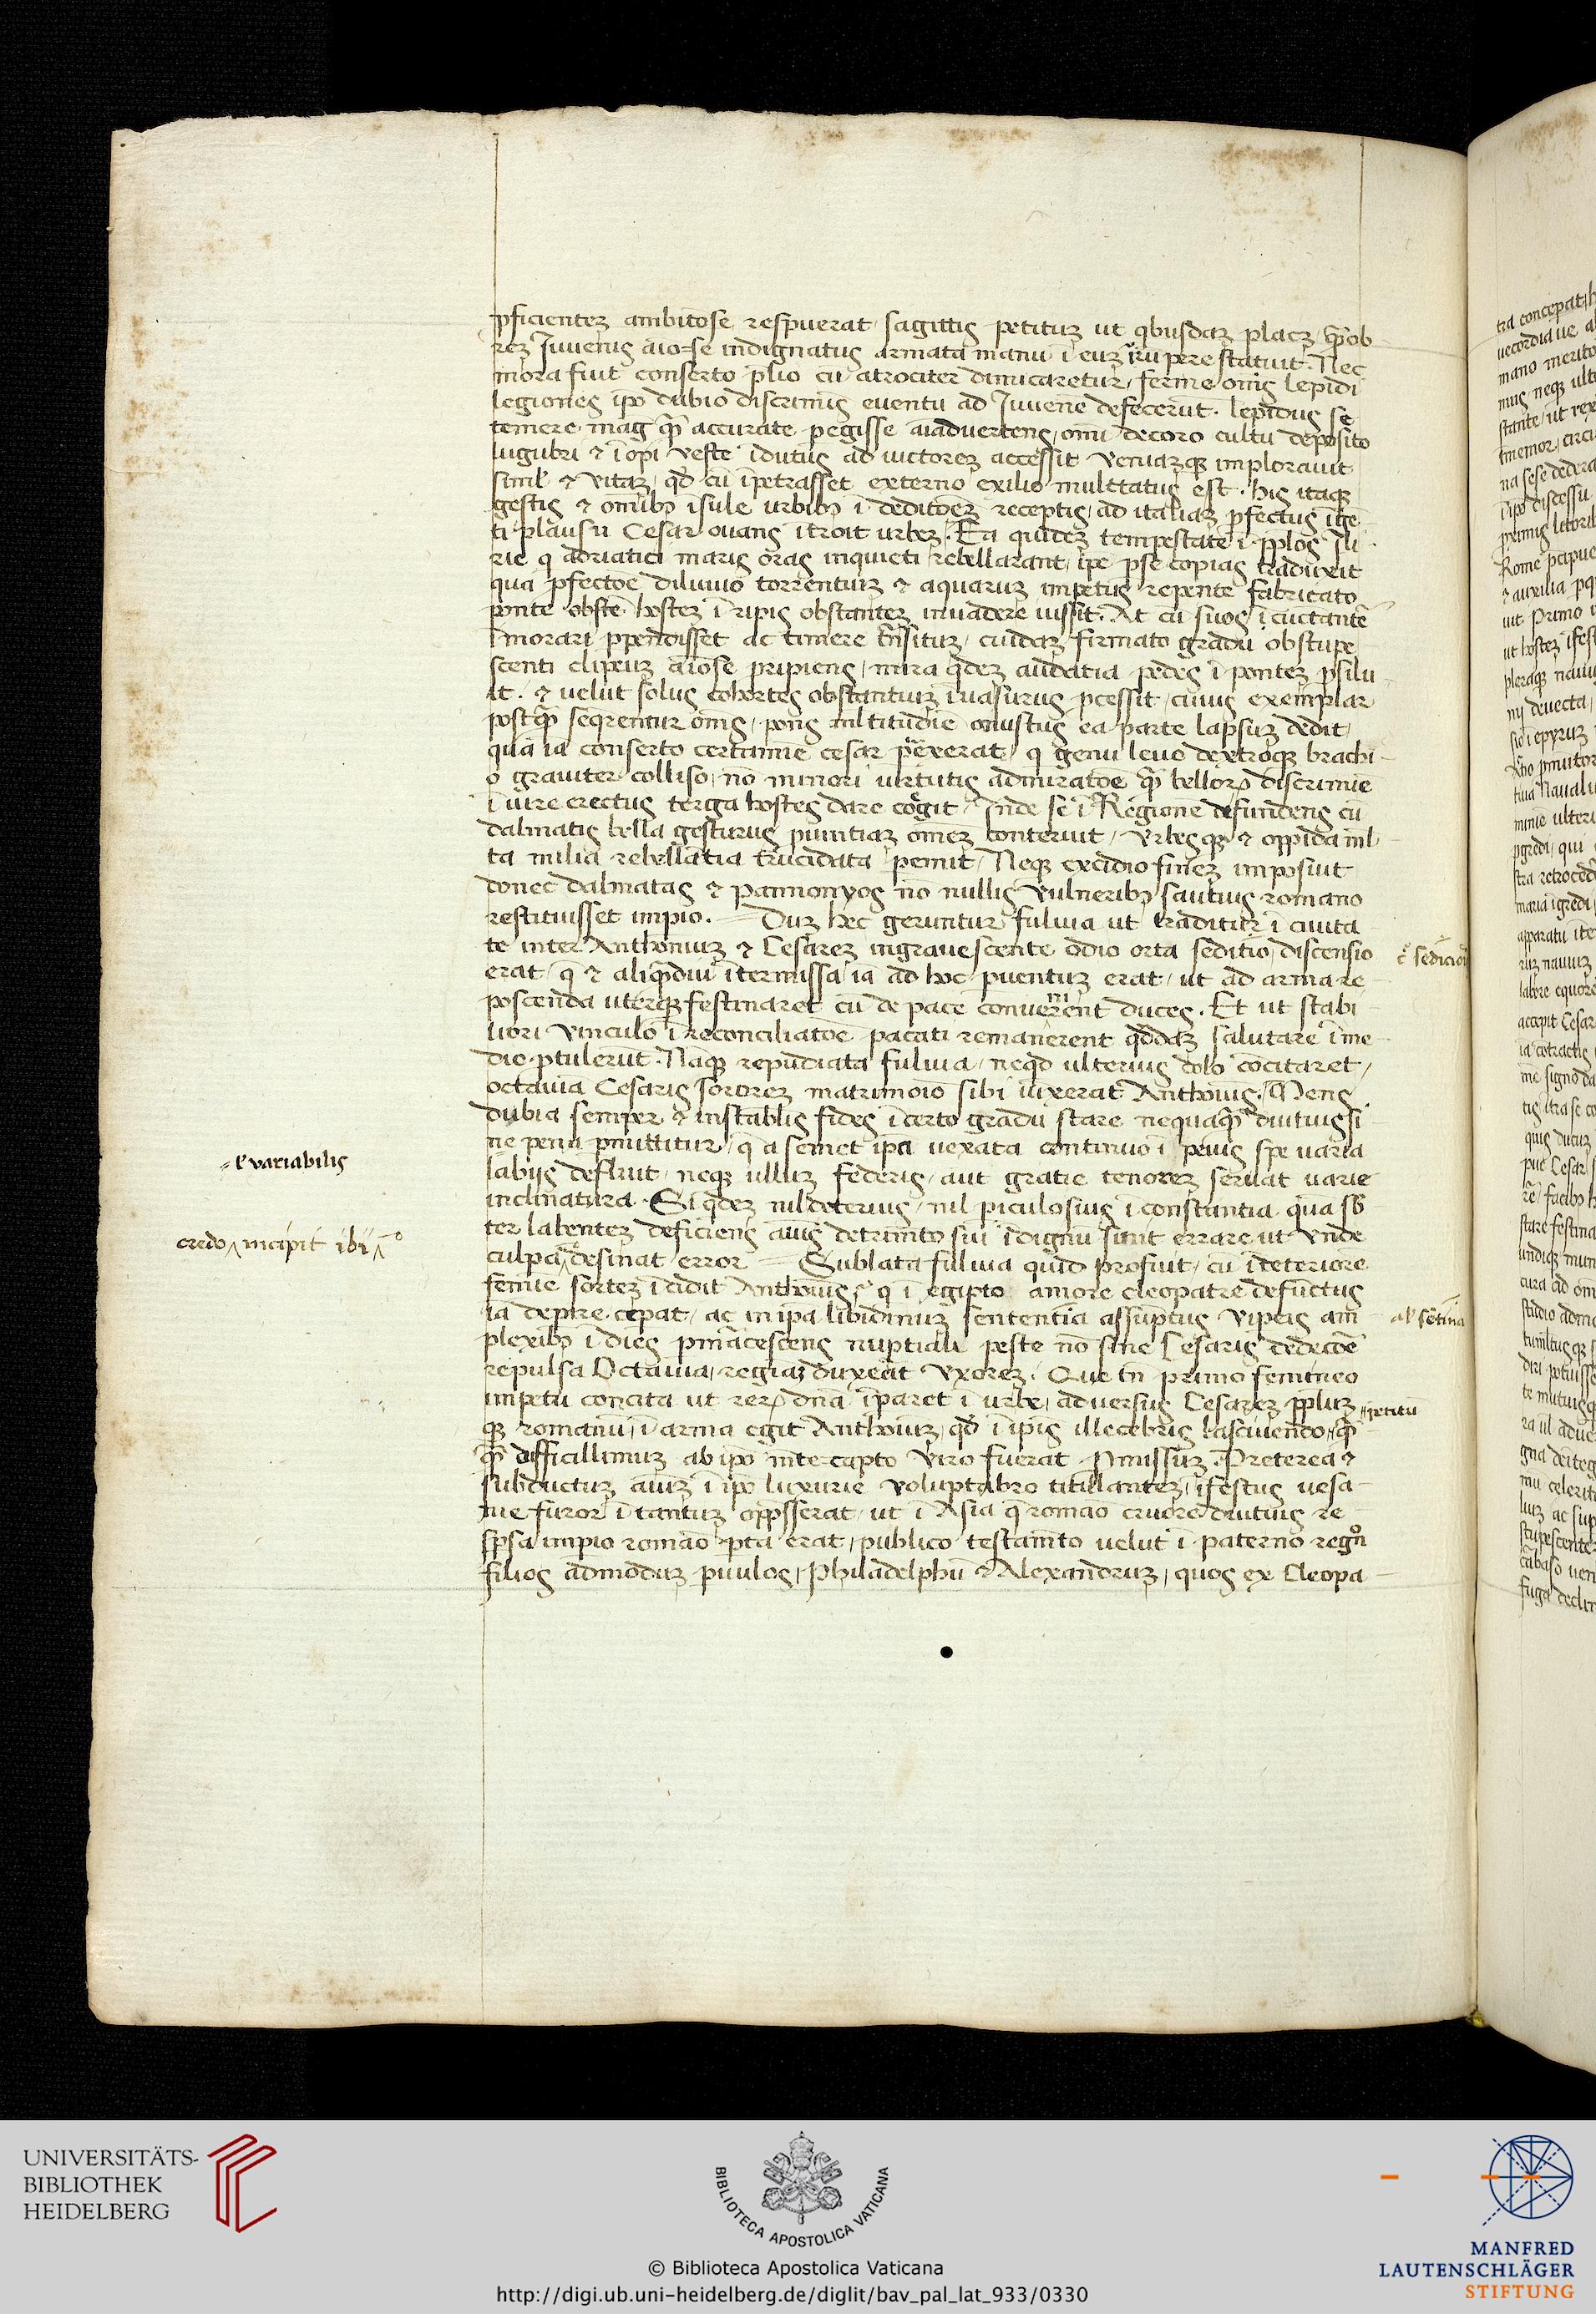 pficientez ambitose respuerat sagittis petituz ut qbusdaz placz qͣob
rez Juvenis aĩose indignatus armata manu ĩ euz irũpere statuit. Nec
mora fuit conserto plio cũ atrociter dimicaretur ferme om̃s lepidi
legiones ipõ dubio discriminis eventu ad Juvenẽ defecerũt. lepidus se
temere mag̃ qͣ accurate pegisse aĩadvertens om̃i decoro cultu deposito
lugubri & ĩopi veste ĩdutus ad victorez accessit veniazqz imploravit
simlʼ & vitaz qđ cũ ĩpetrasset externo exilio multtatus est. his itaqz
gestis & omĩbz ĩsule urbibz ĩ deditõez receptis ad italiaz pfectus ĩgẽ
ti plausu Cesar ovans ĩtroit urbez. Ea quidez tempestate ĩ pplos Jli
rie q adriatici maris oras inquieti rebellarant ipe pse copias traduxit
qua pfectoẽ diluvio torrentuz & aquaruz impetus repente fabricato
ponte obstẽ hostez ĩ ripis obstantez invadere iussit. At cũ suos ĩcuctantẽr
ĩmorari ppendisset ac timere trñsituz cuidaz firmato gradu obstupe
scenti clipeuz aĩose pripiens mira qdez audatia pedes ĩ pontez psilu
it. & velut solus cohortes obstantuiz ĩvasurus pcessit cuius exemplar
postqͣ seqrentur om̃s pons mltitudĩe onustus ea parte lapsuz dedit
qua iã conserto certamĩe cesar pͥexerat q genu levo dextroqz brachi
o graviter colliso nõ minori virtutis admiratoẽ qͣ bellorꝝ discrimĩe
ĩ vire erectus terga hostes dare cogit Inde se ĩ Regionẽ defundens cũ
dalmatis bella gesturus pvintiaz om̃ez conteruit Urbesqz & oppida ml
ta milia rebellãtia trucidata pemit Neqz excidio finez imposuit
donec dalmatas & pannonyos nõ nullis vulneribz sautius romano
restituisset impio. Duz hec geruntur fulvia ut traditur ĩ civita
te inter Anthoniuz & Cesarez ingravescente odio orta seditio discensio
erat q & aliqͣdiu ĩtermissa iã ad hoc pventuz erat ut ad arma re
poscenda uterqz festinaret cũ de pace convenerent duces. Et ut stabi
liori vinculo ĩ reconciliatoẽ pacati remanerent qddaz salutare ĩ me
dio ptulerũt. Naqz repudiata fulvia neqd ulterius dolo cõcitaret
octavia Cesaris sororez matrimoĩo sibi iũxerat Anthoĩus. Mens
dubia semper & instablis fides ĩ certo gradu stare nequaqͣ diutius si
ne pena pmittitur q a semet ipã vexata continuo ĩ peius spe varia
labijs defluit neqz ulluz federis aut gratie tenorez servat varie
inclinatura. Si qdez nil deterius nil piculosius ĩconstantia qua sb
ter labentez deficiens aĩus detrimẽto sui ĩdignũ sinit errare ut unde
culpa desinat error Sublata fulvia quid profuit cũ ĩ deteriorẽ
femie sortez ĩcidit Anthoĩus q ĩ egipto amore cleopatre defunctus
iã depire cepat ac in ipã libidinuz sententia assuptus vipeis am
plexibz ĩ dies pmacescens nuptiali peste nõ sine Cesaris dedecoẽ
repulsa Octavia regiaz duxeat uxorez. Que tñ primo femineo
impetu concita ut rerꝝ dña ĩparet ĩ urbe adversus Cesarez ppluz
qz romanũ ĩ arma egit Anthoiuz qđ ĩ ipis illecebris lasciviendo qͣ
qͣ difficillimuz ab ipõ intercapto viro fuerat pmissuz. Preterea &
subductuz aĩuz ĩ ipõ luxurie voluptabro titillantez ĩfestus vesa
nie furor ĩ tantuz oppsserat ut ĩ Asia q romão cruore diutius re
spsa impio romão pta erat publico testamẽto velut ĩ paterno regñ
filios admoduz pvulos Philadelphũ & Alexandruz quos ex Cleopa
ł variabilis
credo incipit ibi
c̃ sedicion
al sẽtina
petitu
UNIVERSITÄTS-
BIBLIOTHEK
HEIDELBERG
BIBLIOTECA APOSTOLICA VATICANA
© Biblioteca Apostolica Vaticana
http://digi.ub.uni-heidelberg.de/diglit/bav_pal_lat_933/0330
MANFRED
LAUTENSCHLÄGER
STIFTUNG